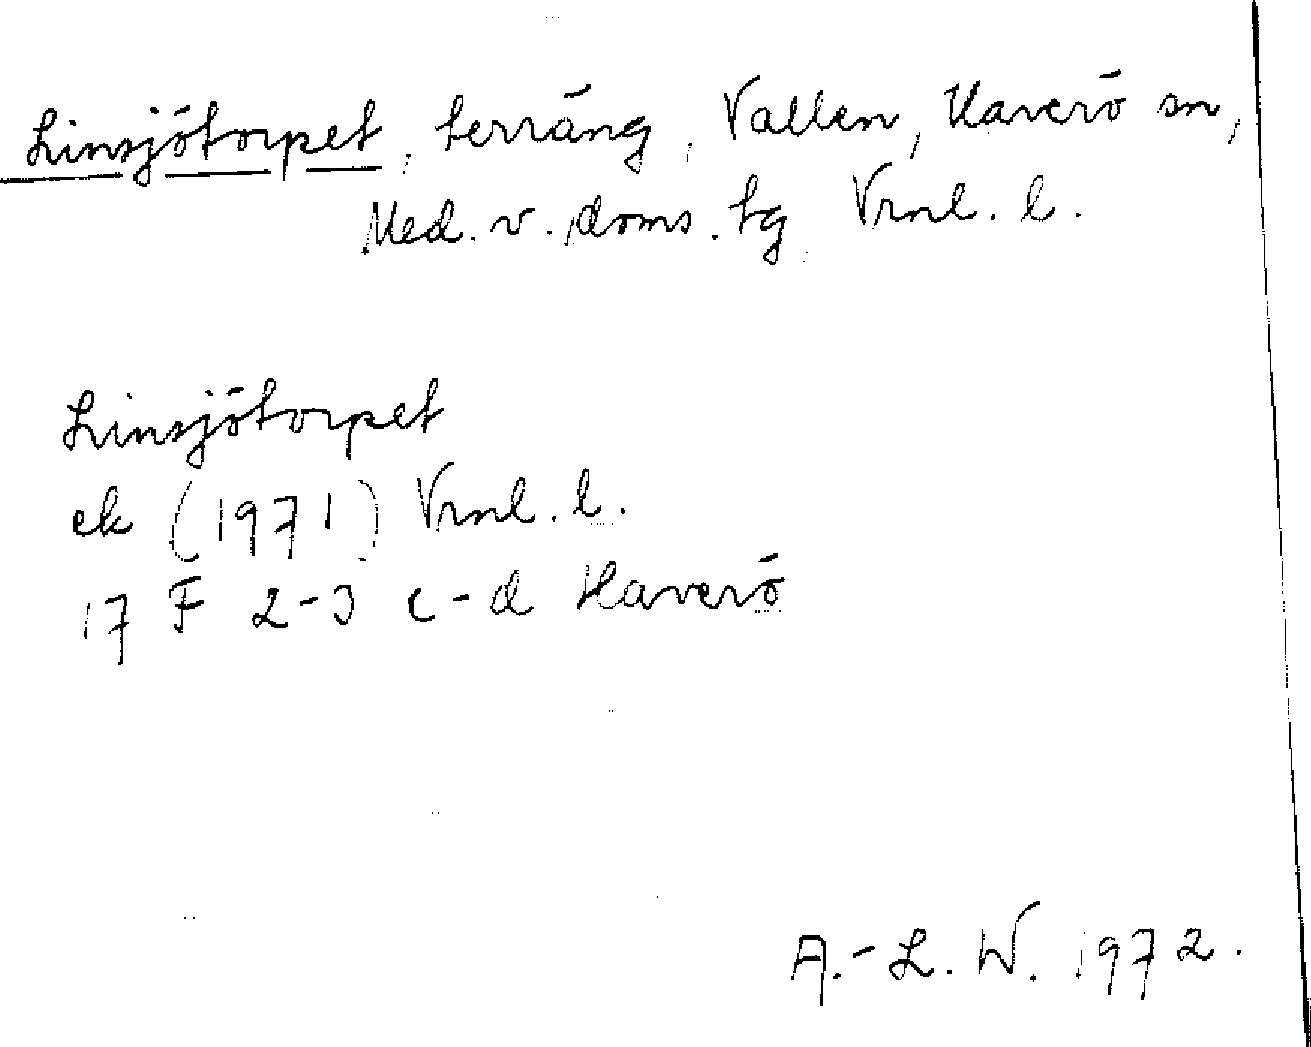 Linsjötorpet, terräng, Vallen, Haverö sn,
Med. v. doms. tg Vrnl. l.
Linsjötorpet
ek (1971) Vrnl. l.
17 F 2-3 c-d Haverö
A.-L. W. 1972.